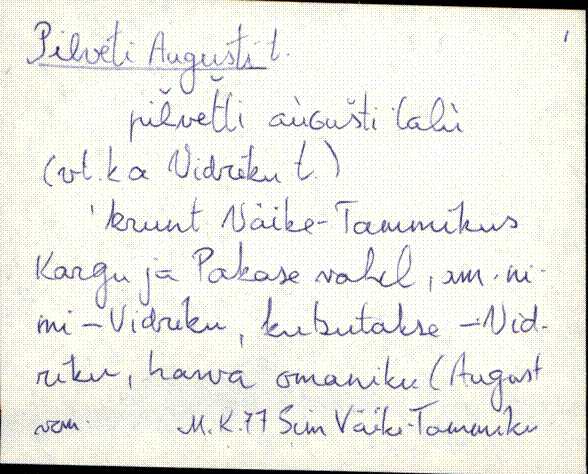 Pilveti Augusti t.
pilveti augusti talu
(vt. ka Vidriku t.)
krunt Väike-Tammikus
Kargu ja Pakase vahel, am. ni-
mi - Vidriku, kutsutakse - Vid-
riku, harva omaniku (August
M.K. 77 Sim Väike-Tammiku